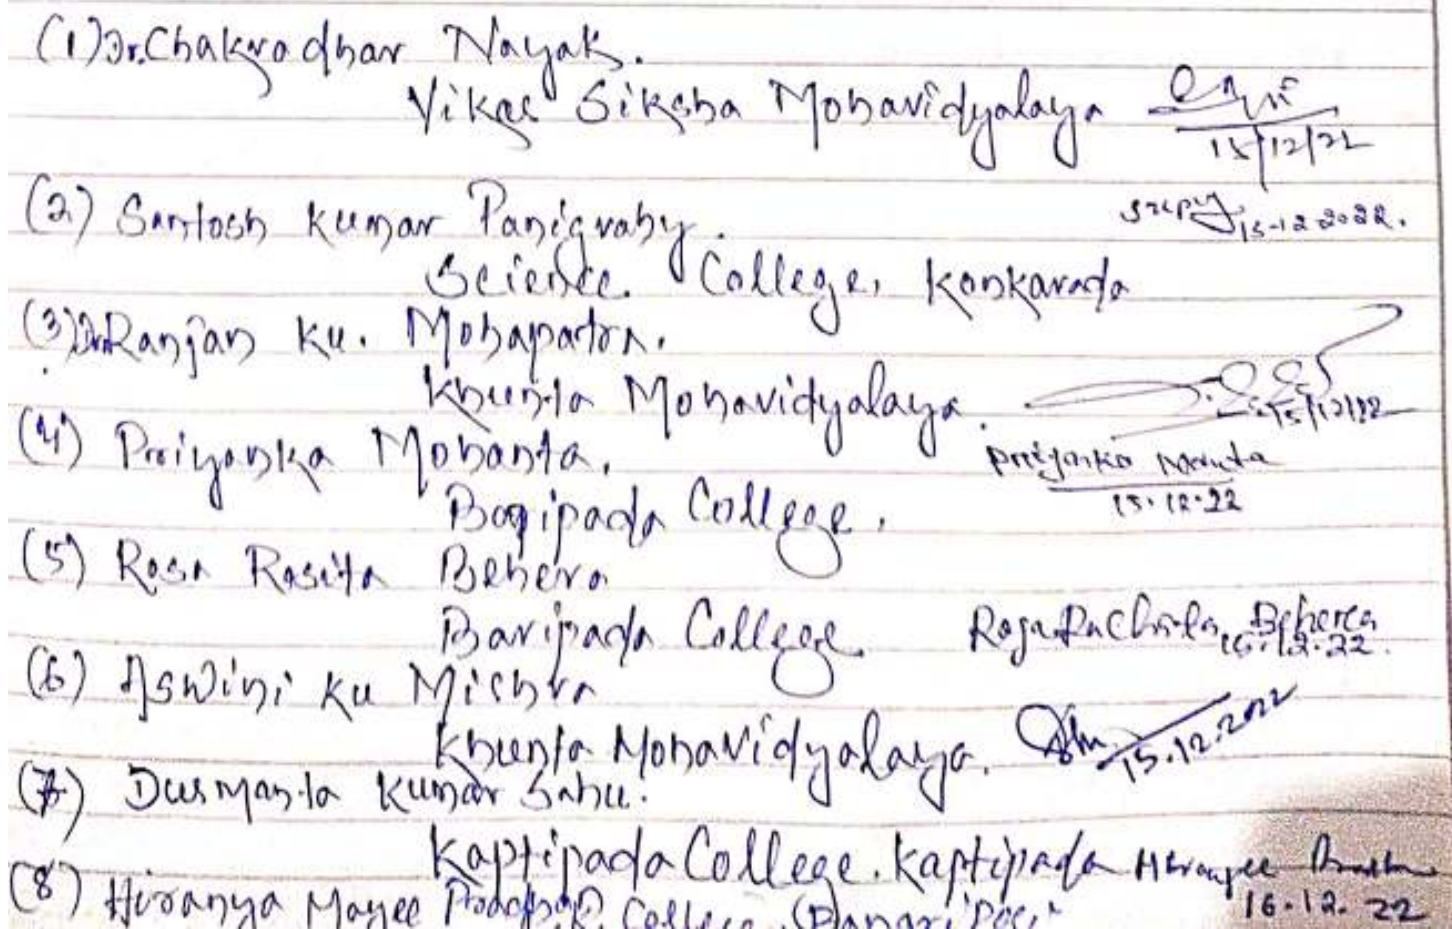 (1) Dr. Chakradhar Nayak.
Vikas Siksha Mohavidyalaya
15/12/22
(2) Santosh Kumar Panigrahy.
15-12-2022.
Science College, Kankarada
(3) Dr. Ranjan Ku. Mohapatra.
Khunta Mohavidyalaya.
15/12/22
(4) Priyanka Mohanta.
Priyanka
15.12.22
Bagipada College.
(5) Rosa Rasita Behera
Baripada College Behera
15.12.22
(6) Aswini Ku Mishra
Khunta Mohavidyalaya. 15.12.2022
(7) Dusmanta Kumar Sahu.
Kaptipada College. Kaptipada
(8) Hiranya Mayee College
16.12.22